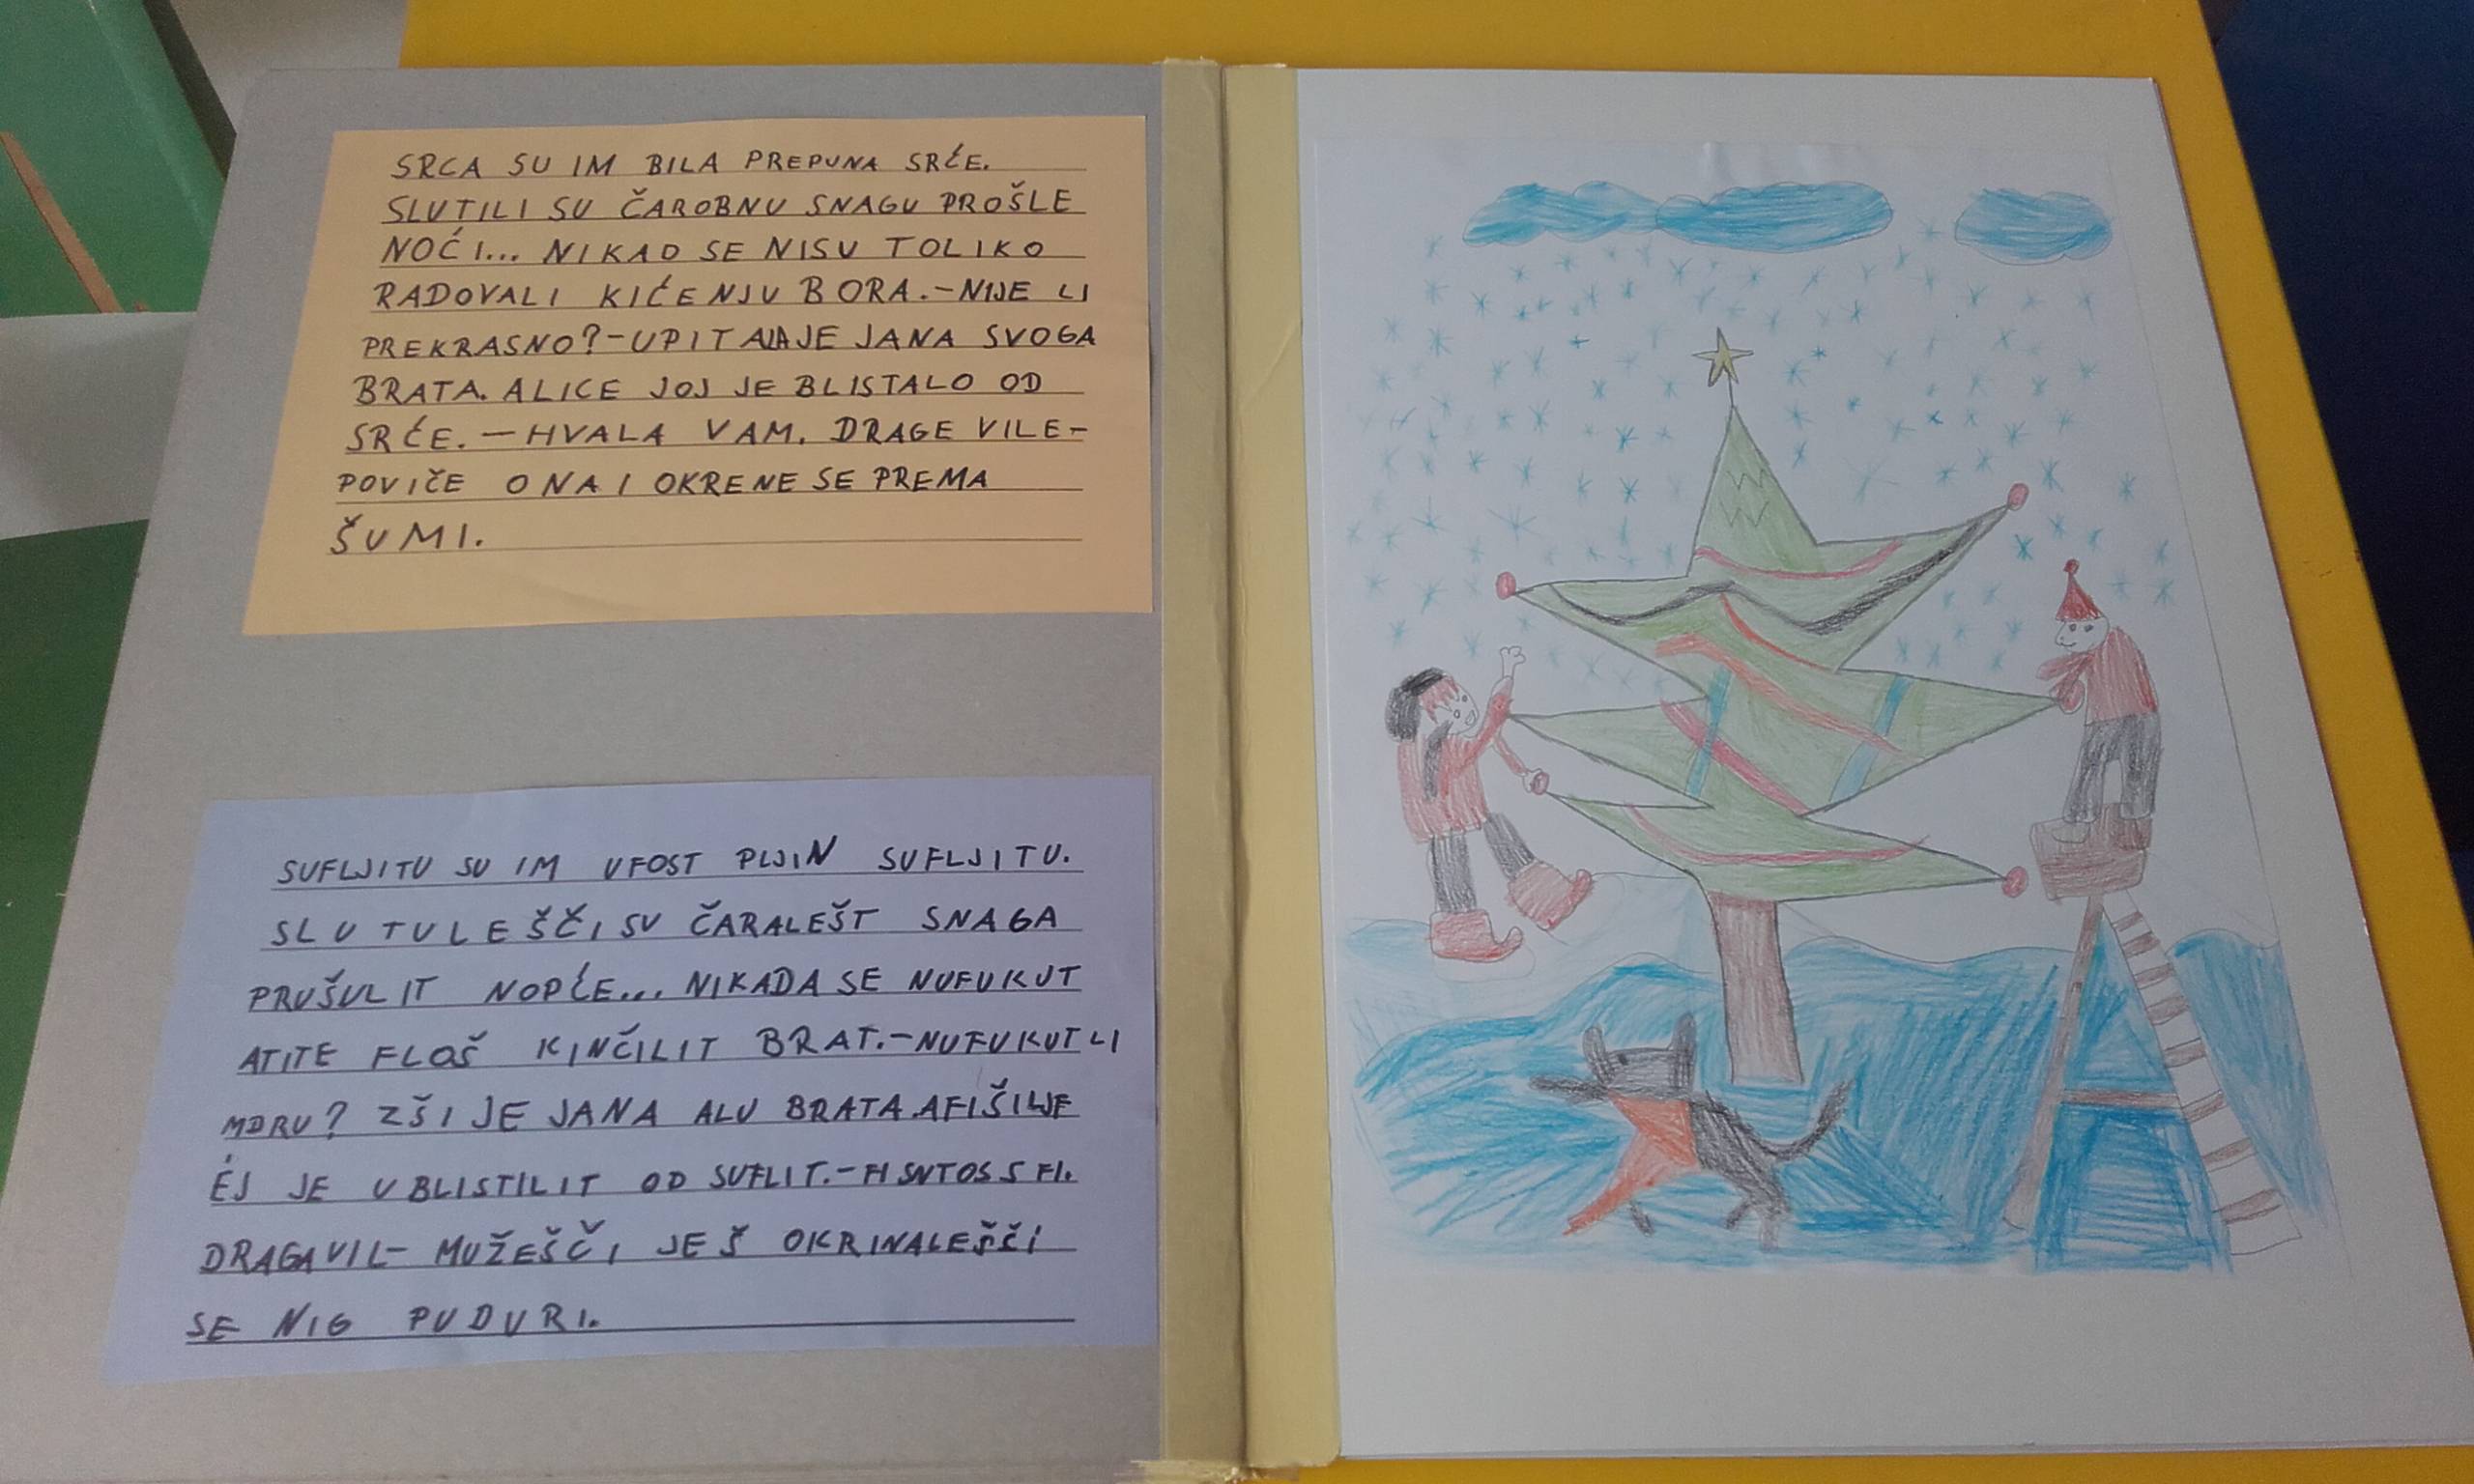 SRCA SU IM BILA PREPUNA SRĆE.
SLUTILI SU ČAROBNU SNAGU PROŠLE
NOĆI... NIKAD SE NISU TOLIKO
RADOVALI KIĆENJU BORA.-NIJE LI
PREKRASNO?-UPITALA JE JANA SVOGA
BRATA. ALICE JOJ JE BLISTALO OD
SRĆE. - HVALA VAM, DRAGE VILE-
POVIČE ONA I OKRENE SE PREMA
ŠUMI.
SUFLJITU SU IM UFOST PLJIN SUFLJITU.
SLUTULEŠČI SU ČARALEŠT SNAGA
PRUŠULIT NOPĆE... NIKADA SE NUFUKUT
ATITE FLOŠ KINČILIT BRAT.-NUFUKUT LI
MDRU? ZŠI JE JANA ALU BRATA. AFIŠILJE
ĖJ JE UBLISTILIT OD SUFLIT.-FI
DRAGA VIL- MUŽEŠČI JE Š OKRINALEŠČI
SE NIG PUDURI.